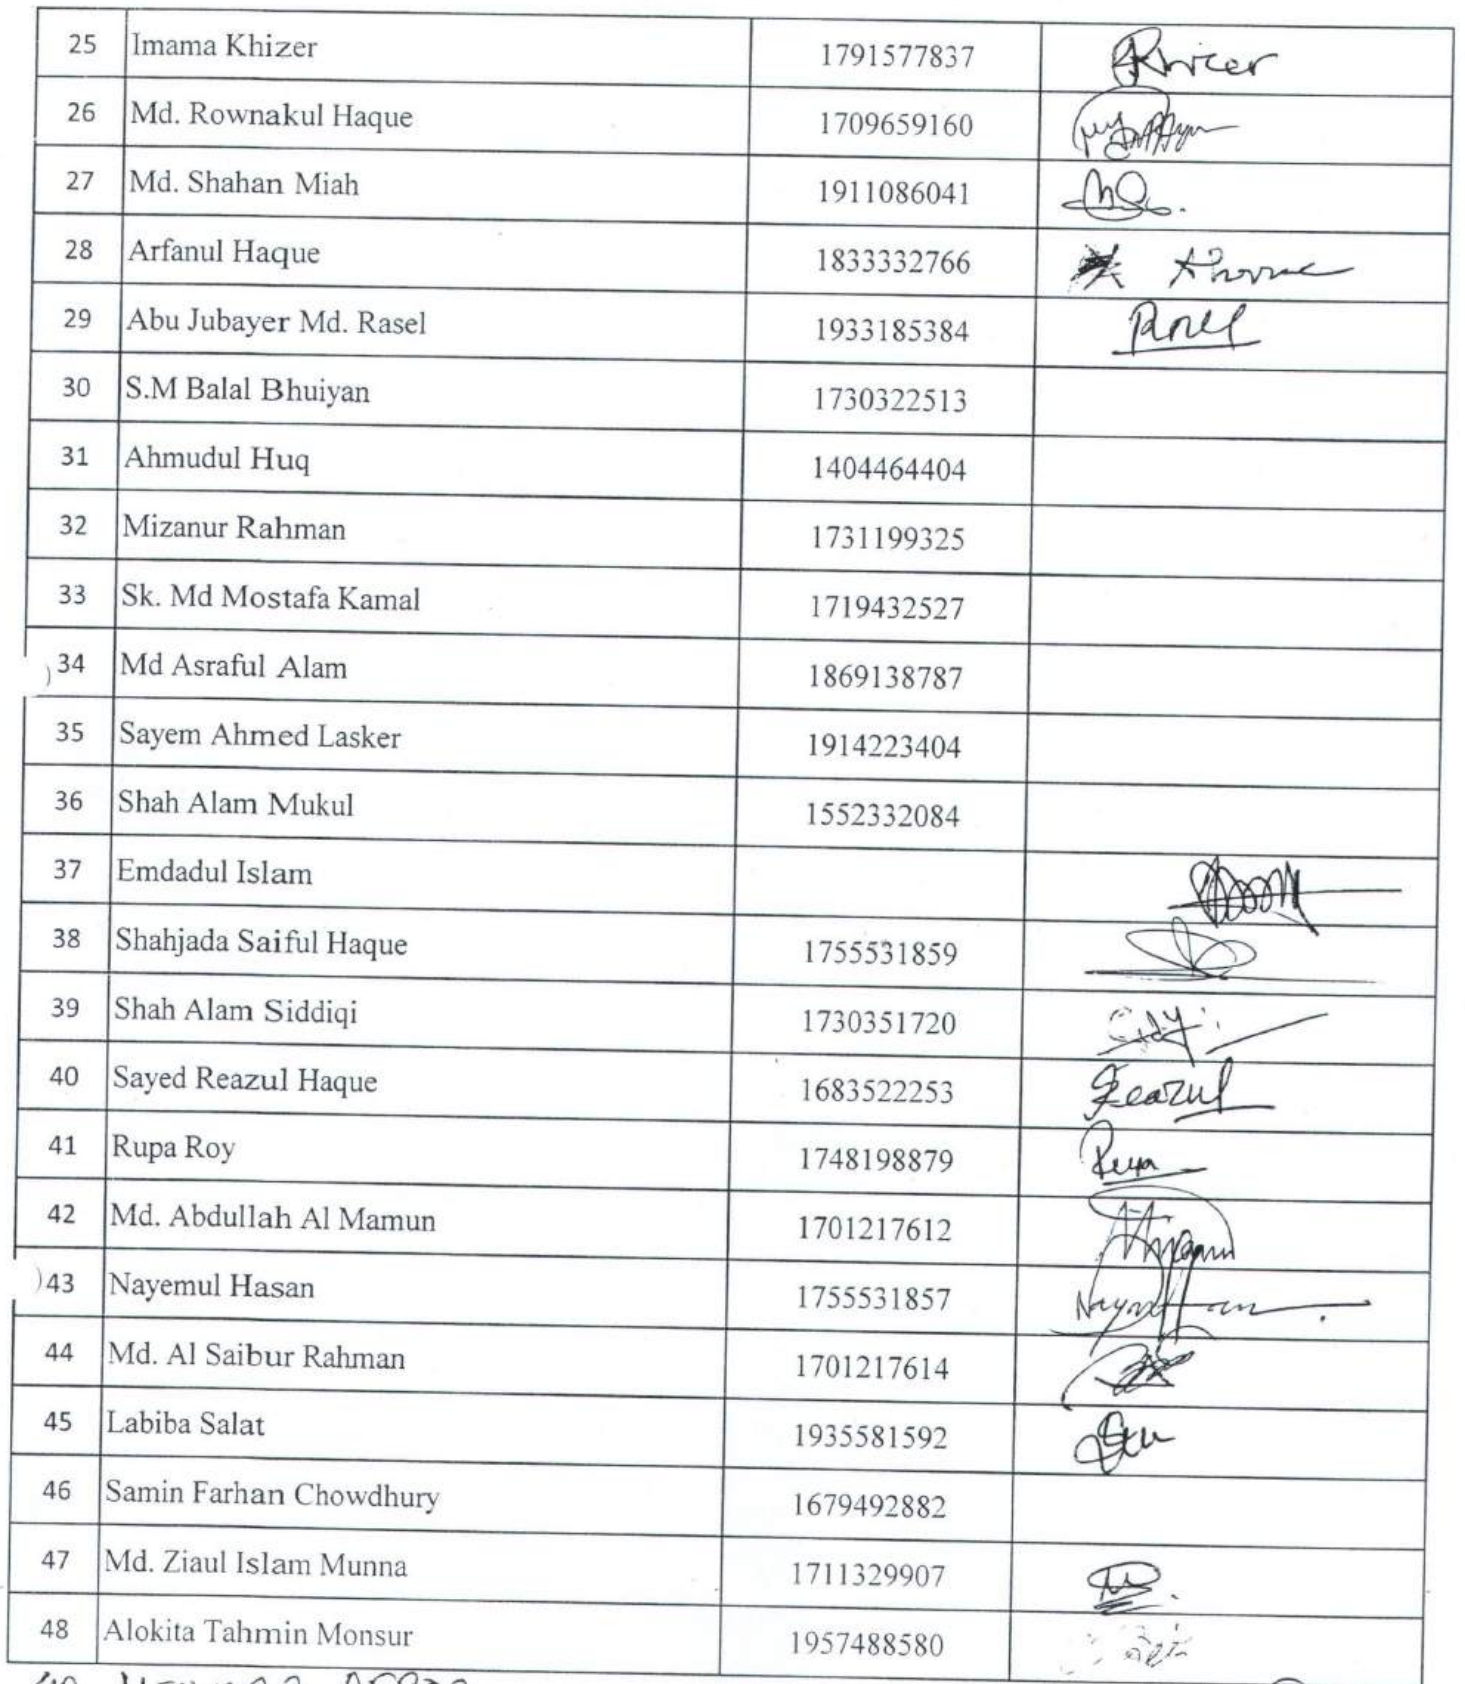 25 Imama Khizer 1791577837 Khizer
26 Md. Rownakul Haque 1709659160
27 Md. Shahan Miah 1911086041
28 Arfanul Haque 1833332766
29 Abu Jubayer Md. Rasel 1933185384
30 S.M Balal Bhuiyan 1730322513
31 Ahmudul Huq 1404464404
32 Mizanur Rahman 1731199325
33 Sk. Md Mostafa Kamal 1719432527
34 Md Asraful Alam 1869138787
35 Sayem Ahmed Lasker 1914223404
36 Shah Alam Mukul 1552332084
37 Emdadul Islam
38 Shahjada Saiful Haque 1755531859
39 Shah Alam Siddiqi 1730351720
40 Sayed Reazul Haque 1683522253 Reazul
41 Rupa Roy 1748198879 Rupa
42 Md. Abdullah Al Mamun 1701217612
43 Nayemul Hasan 1755531857
44 Md. Al Saibur Rahman 1701217614
45 Labiba Salat 1935581592
46 Samin Farhan Chowdhury 1679492882
47 Md. Ziaul Islam Munna 1711329907
48 Alokita Tahmin Monsur 1957488580